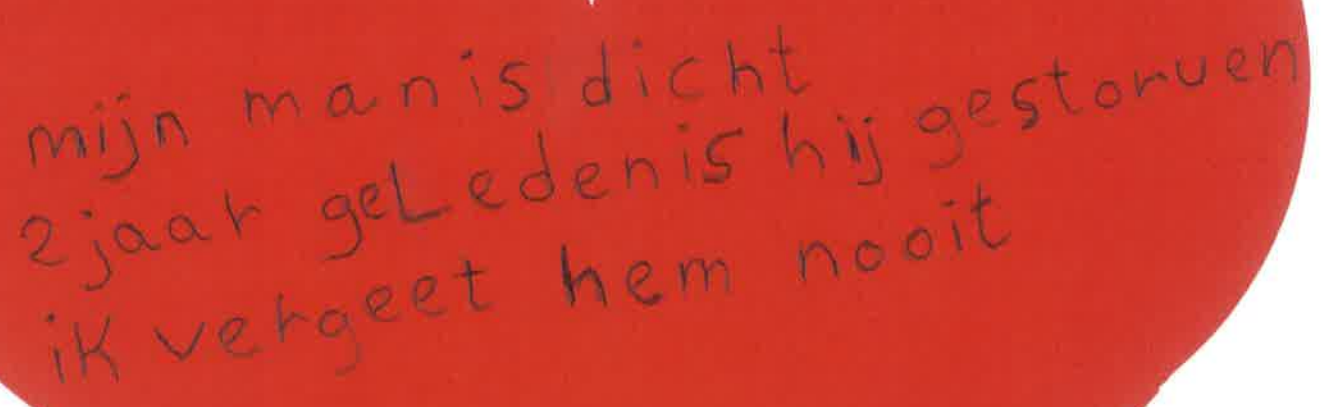 mijn man is dicht
2 jaar geLeden is hij gestorven
ik vergeet hem nooit